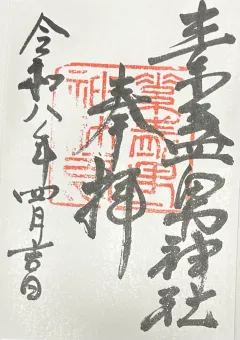 素盞男神社
奉拝
令和八年四月吉日